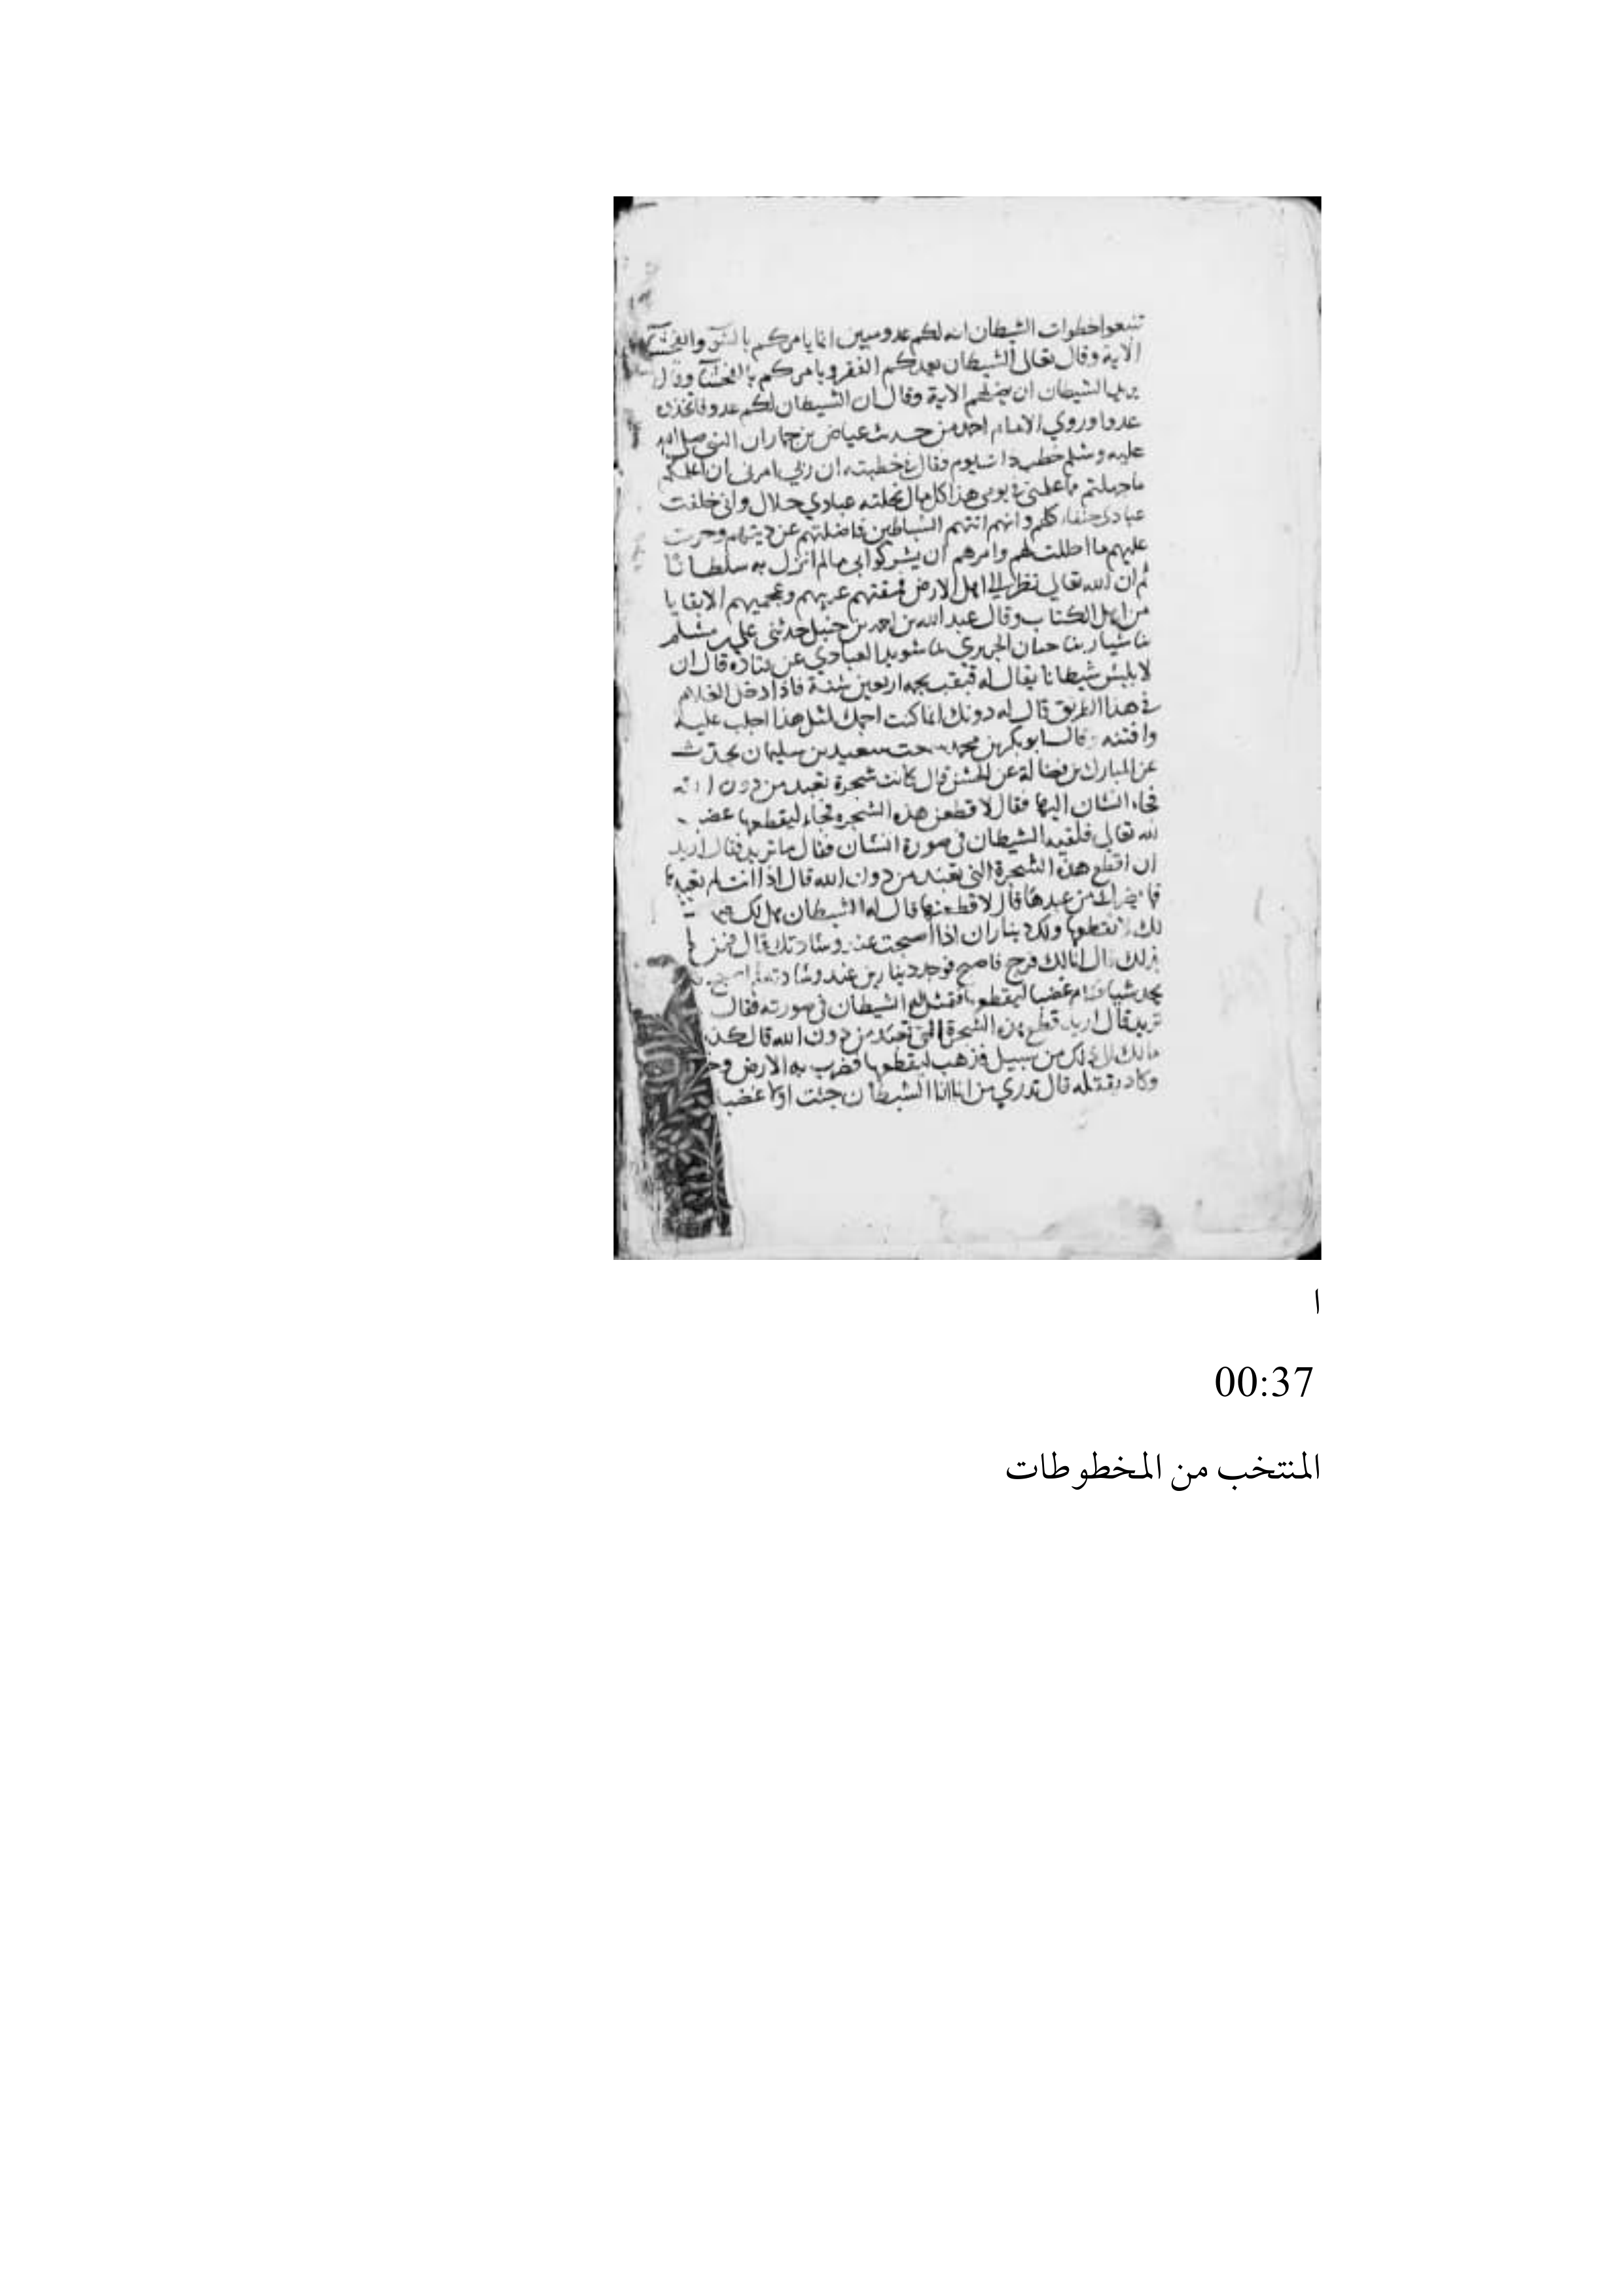 تتبعوا خطوات الشيطان انه لكم عدو مبين انما يامركم بالسوء والفحشاء
الاية وقال تعالى الشيطان يعدكم الفقر ويامركم بالفحشاء وقال
يريد الشيطان ان يضلهم الاية وقال ان الشيطان لكم عدو فاتخذوه
عدوا وروي الامام احمد من حديث عياض بن حمار ان النبي صلى الله
عليه وسلم خطب ذات يوم فقال في خطبته ان ربي امرني ان اعلمكم
ما جهلتم مما علمني في يومي هذا كل مال نحلته عبادي حلال واني خلقت
عبادي حنفاء كلهم وانهم اتتهم الشياطين فاضلتهم عن دينهم وحرمت
عليهم ما احللت لهم وامرهم ان يشركوا بي ما لم انزل به سلطانا
ثم ان الله تعالي نظر الي اهل الارض فمقتهم عربهم وعجميهم الا بقايا
من اهل الكتاب وقال عبد الله بن احمد بن حنبل حدثني علي بن مسلم
بنا سيار بنا حيان الجريري بنا سويد العبادي عن قتاده قال ان
لابليس شيطانا يقال له قبقب يجمه اربعين سنة فاذا دخل الغلام
في هذا الطريق قال له دونك انما كنت اجمك لمثل هذا اجلب عليه
وافتنه وقال ابو بكر بن محمد سمعت سعيد بن سليمان يحدث
عن المبارك بن فضالة عن الحسن قال كانت شجرة تعبد من دون الله
فجاء انسان اليها فقال لاقطعن هذه الشجره فجاء ليقطعها غضبا
لله تعالي فلقيه الشيطان في صورة انسان فقال ما تريد فقال اريد
ان اقطع هذه الشجرة التي تعبد من دون الله قال اذا انت لم تعبدها
فما يضرك من عبدها قال لاقطعنها قال له الشيطان هل لك
لك لا تقطعها ولك ديناران اذا اصبحت عند وسادتك قال فمن لي
بذلك قال انا لك فرجع فاصبح فوجد دينارين عند وسادته
يجد شيا فقام غضبا ليقطعها فتمثل له الشيطان في صورته فقال
تريد قال اريد قطع هذه الشجرة التي تعبد من دون الله قال كذبت
ما لك الي ذلك من سبيل فذهب ليقطعها فضرب به الارض
وكاد يقتله قال تدري من انا انا الشيطان جئت اولا غضبا
ا
00:37
المنتخب من المخطوطات